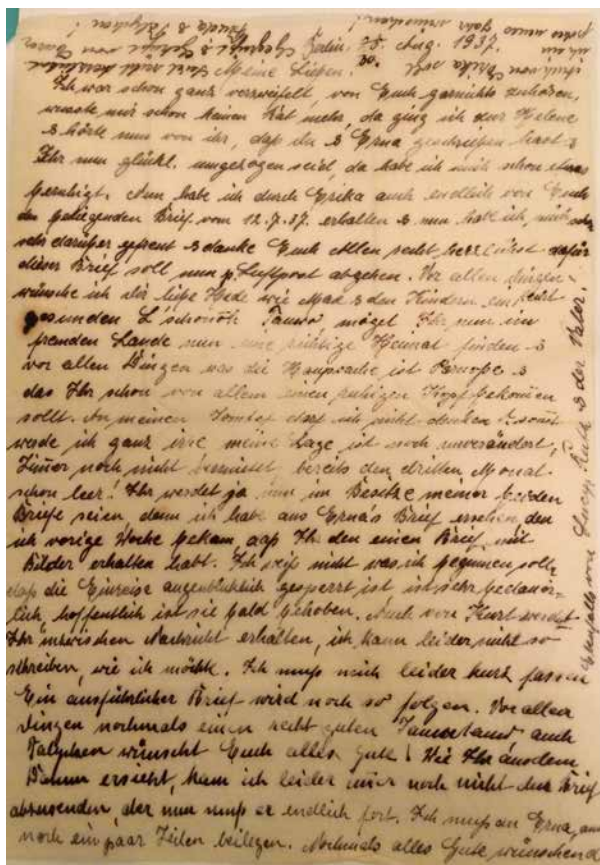 Berlin, Aug. 1937.
Meine Lieben!
Ich war schon ganz verzweifelt, von Euch garnichts zuhören,
wusste mir schon keinen Rat mehr, da ging ich zur Helene
& hörte nun von ihr, daß du & Erna geschrieben hast &
Ihr nun glückl. umgezogen seid, da habe ich mich schon etwas
beruhigt. Nun habe ich durch Erika auch endlich von Euch
den beiliegenden Brief vom 12.7.37. erhalten & nun habe ich mich
sehr darüber gefreut & danke Euch Allen recht herzlichst dafür
dieser Brief soll nun p. Luftpost abgehen. Vor allen Dingen
wünsche ich dir liebe Hede wie Max & den Kindern ein recht
gesunden mögel Ihr nun im
fremden Lande nun eine richtige Heimat finden &
vor allen Dingen was die Hauptsache ist &
das Ihr schon von allem einen ruhigen Kopf bekommen
sollt. An meinen darf ich nicht denken sonst
werde ich ganz irre meine Lage ist noch unverändert,
Immer noch nicht vermietet, bereits den dritten Monat
schon leer! Ihr werdet ja nun im Besitze meiner beiden
Briefe seien, denn ich habe aus Erna's Brief ersehen, den
ich vorige Woche bekam, daß Ihr den einen Brief mit
Bilder erhalten habt. Ich weiß nicht was ich beginnen soll,
daß die Einreise augenblicklich gesperrt ist ist sehr bedauer-
lich, hoffentlich ist sie bald behoben. Auch von Kurt werdet
Ihr inzwischen Nachricht erhalten, ich kann leider nicht so
schreiben, wie ich möchte. Ich muß mich leider kurz fassen
Ein ausführlicher Brief wird noch so folgen. Vor allen
Dingen nochmals einen recht guten auch
wünscht Euch alles gute! Wie Ihr aus dem
Datum ersieht, kam ich leider immer noch nicht den Brief
abzusenden, aber nun muß er endlich fort. Ich muß an Erna,
noch ein paar Zeilen beilegen. Nochmals alles Gute wünschend
Ebenfalls von Lucy, Ruth & der Vater.